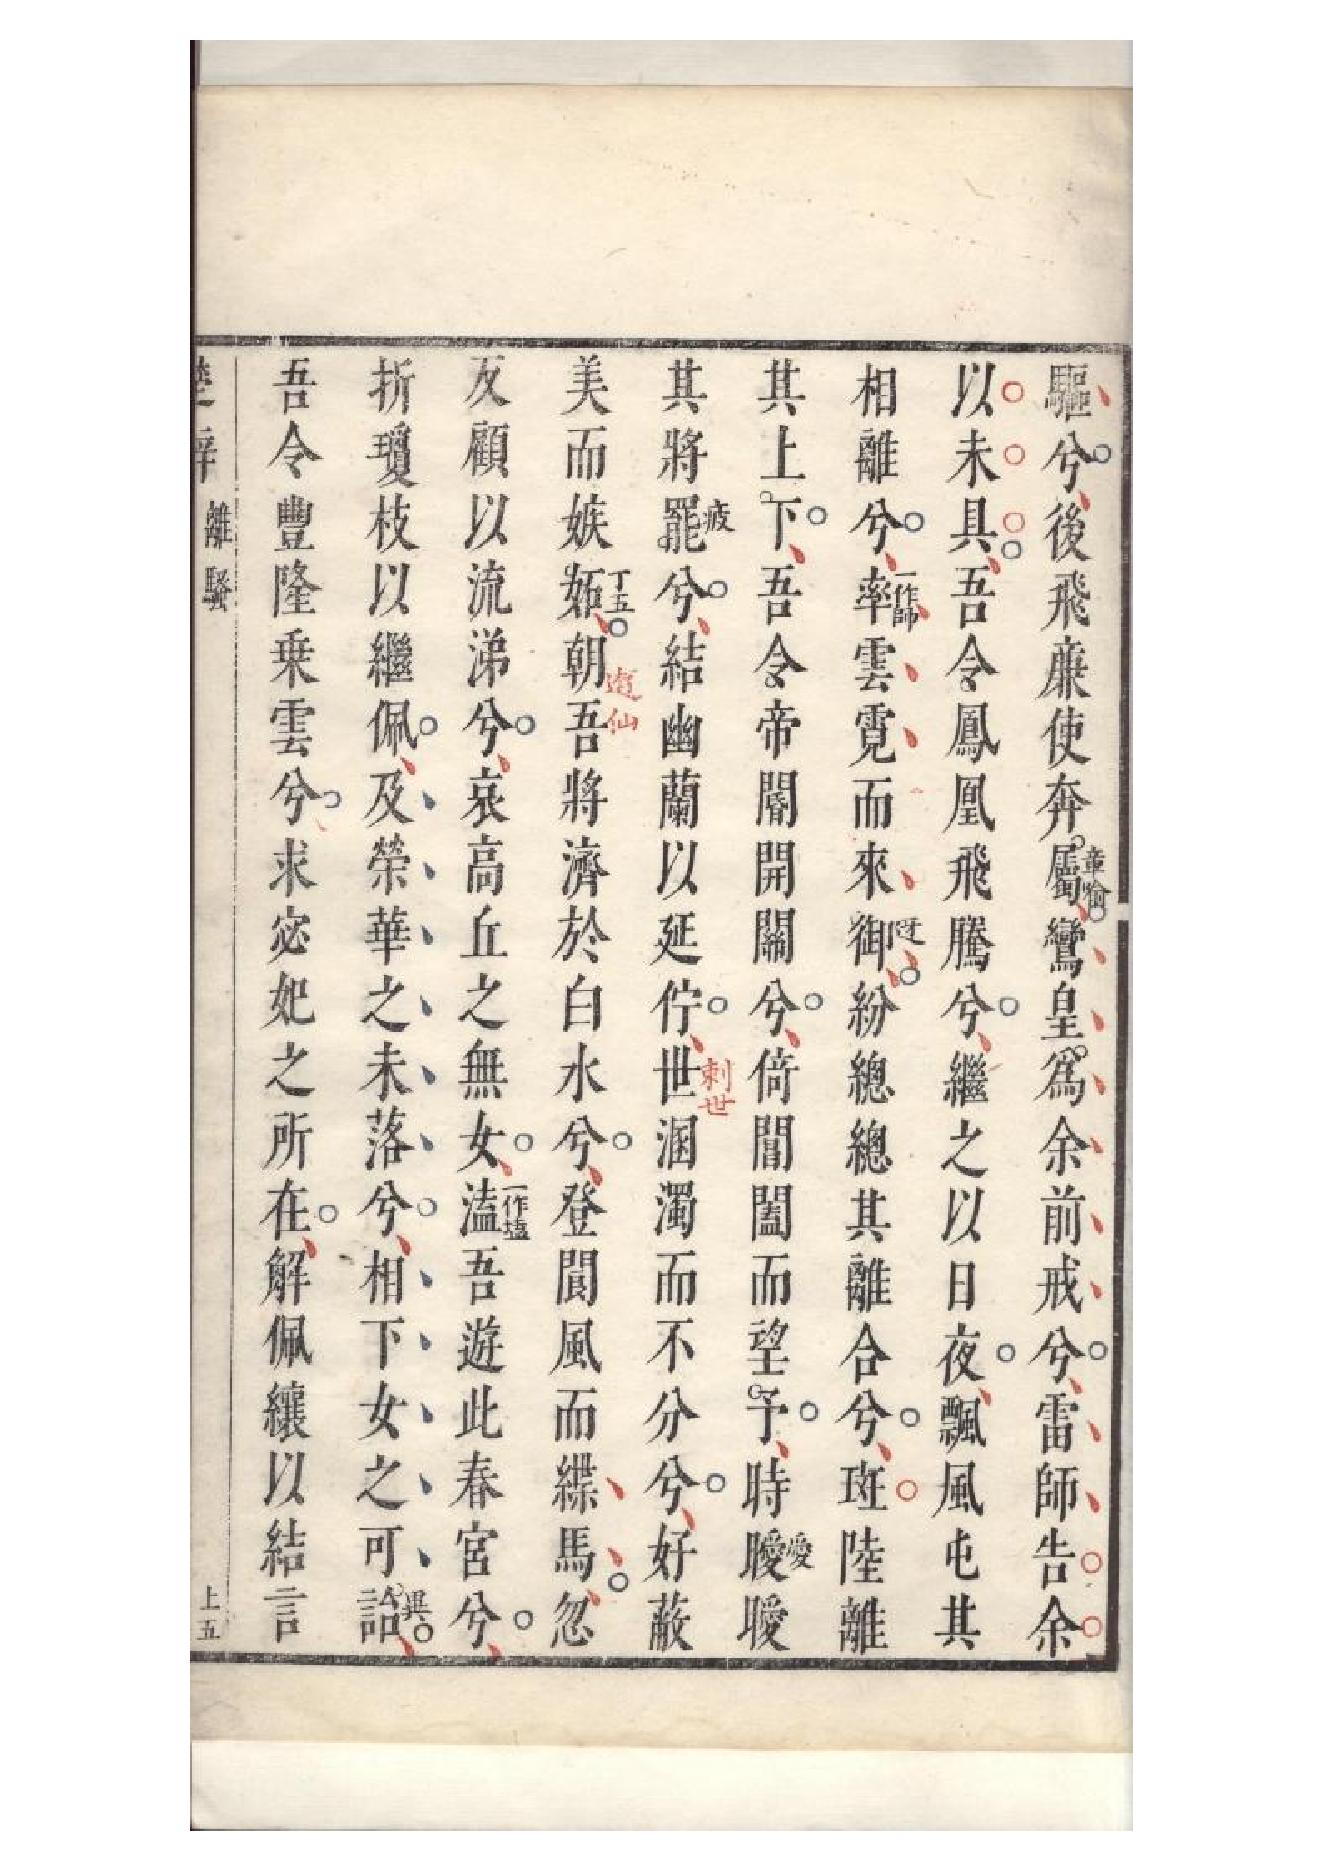 驅兮後飛廉使奔屬章喻鸞皇爲余前戒兮雷師告余
以未具吾令鳳凰飛騰兮繼之以日夜飄風屯其
相離兮率一作帥雲霓而來御迓紛總總其離合兮斑陸離
其上下吾令帝閽開關兮倚閶闔而望予時曖曖愛
其將罷疲兮結幽蘭以延佇世溷濁而不分兮好蔽
刺世
美而嫉妬丁五朝吾將濟於白水兮登閬風而緤馬忽
遊仙
反顧以流涕兮哀高丘之無女溘一作壒吾遊此春宮兮
折瓊枝以繼佩及榮華之未落兮相下女之可詒異
吾令豐隆乗雲兮求宓妃之所在解佩纕以結言
楚辭 離騷 上五